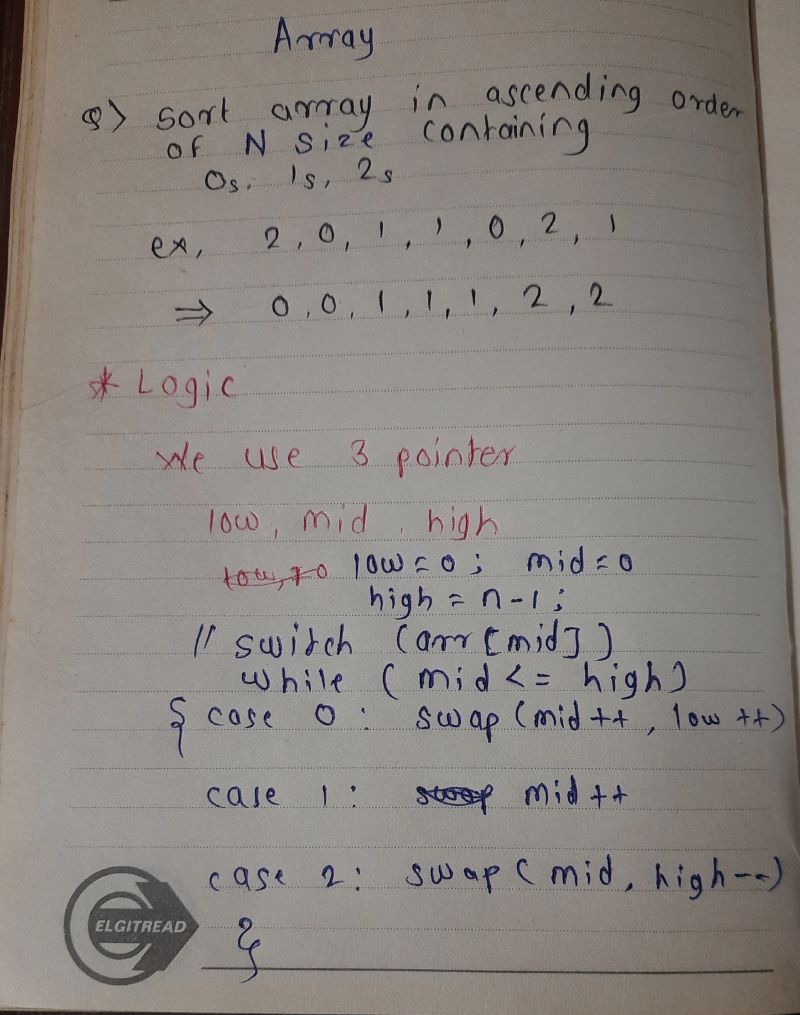 Array
Q) sort array in ascending order
of N size containing
0s, 1s, 2s
ex, 2, 0, 1, 1, 0, 2, 1
⇒ 0, 0, 1, 1, 1, 2, 2
* Logic
We use 3 pointer
low, mid, high
low = 0; mid = 0
high = n-1;
// switch (arr[mid])
while (mid <= high)
{ case 0: swap(mid++, low++)
case 1: mid++
case 2: swap(mid, high--)
}
ELGITREAD